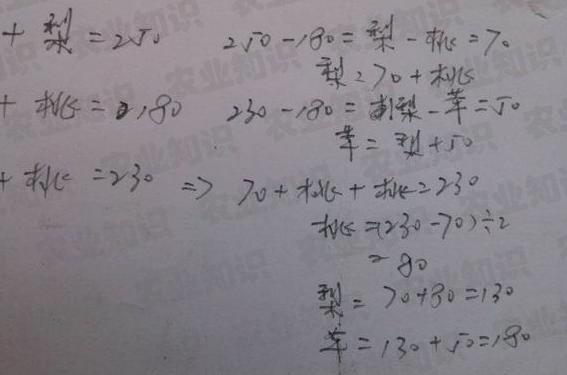 + 梨 = 250 250 - 180 = 梨 - 桃 = 70
梨 = 70 + 桃
+ 桃 = 180 230 - 180 = 梨 - 苹 = 50
苹 = 梨 + 50
+ 桃 = 230 => 70 + 桃 + 桃 = 230
桃 = (230 - 70) ÷ 2
= 80
梨 = 70 + 80 = 130
苹 = 130 + 50 = 180
农业知识